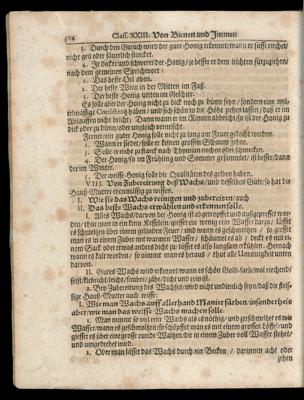 304 Class. XXIII. Von Bienen und Immen
3. Durch den Geruch wird der gute Honig erkennet / wann er süsse riechet /
nicht geil oder säuerlich stincket.
4. Je dicker und schwerer der Honig / je besser er dem leichten fürzuziehen /
nach dem gemeinen Sprichwort:
1. Das beste Oel oben.
2. Der beste Wein in der Mitten im Faß.
3. Der beste Honig unten im Geschirr.
Es solle aber der Honig nicht zu dick noch zu dünn seyn / sondern eine
telmässige haben / und sich schön in die Höhe ziehen lassen / daß er im
Ablauffen nicht bricht; Dann wann er im Rinnen abbricht / so ist der Honig zu
dick oder zu dünn / oder ungleich vermischt.
Ferner / ein guter Honig solle nicht zu lang am Feuer gekocht werden.
1. Wann er siedet / solle er keinen grossen Schaum geben.
2. Solle er nicht zu starck nach Thymian riechen oder schmecken.
4. Der Honig / so im Frühling und Sommer gesammlet / ist besser / dann
der im Winter.
5. Der weisse Honig solle die Qualitäten des gelben haben.
VIII. Von Zubereitung deß Wachs / und desselben Güte / so hat die
Hauß-Mutter ebenmässig zu wissen.
I. Wie sie das Wachs reinigen und zubereiten / auch
II. Das beste Wachs erwählen und erkennen solle.
I. Alles Wachs / darvon der Honig ist abgetropffet und außgepresset wor-
den / thut man in ein Kesselein / giesset ein wenig rein Wasser darzu / lässet
es schmeltzen über einem gelinden Feuer / und wann es geschmoltzen / so giesset
man es in einen Zuber mit warmen Wasser / schäumet es ab / oder es mit ei-
nem Sack oder etwas anders dicht zu / lässet es also langsam erkühlen. Hernach
wann es kalt worden / so nimmt man es heraus / thut alle Unreinigkeit unten
darvon.
II. Gutes Wachs wird erkennet / wann es schön Gold-farb / wol riechend /
feist / klebricht / leicht / sauber / gäbe / dicht und rein ist.
2. Bey Zubereitung des Wachses / wird nicht undienlich seyn / daß die fleis-
sige Hauß-Mutter auch wisse:
I. Wie man Wachs auff allerhand Manier färben / insonderheit
aber / wie man das weisse Wachs machen solle.
1. Man nimmt so viel rein Wachs als es nöthig / und zerschmeltzet es mit
Wasser / wann es geschmoltzen / so schöpffet man es mit einem grossen Löffel / und
giesset es über eine grosse runde Waltzen / die in einem Zuber voll Wasser stehet /
und umgedrehet wird.
2. Oder man lässet das Wachs durch ein Becken / darinnen acht oder
zehen